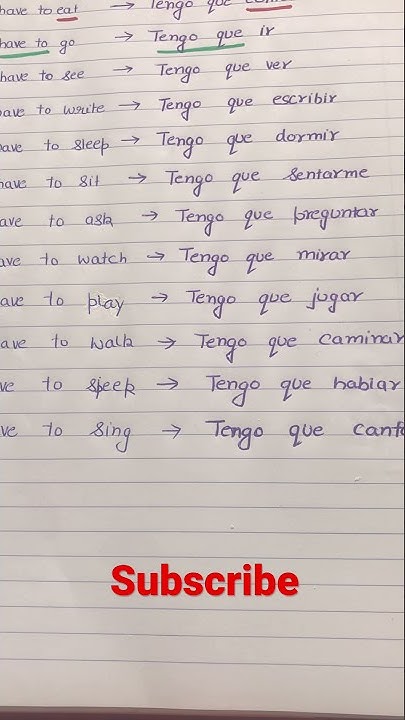 have to eat → Tengo que
have to go → Tengo que ir
have to see → Tengo que ver
ave to write → Tengo que escribir
ave to sleep → Tengo que dormir
have to sit → Tengo que sentarme
ave to ask → Tengo que preguntar
ave to watch → Tengo que mirar
ave to play → Tengo que jugar
ave to walk → Tengo que caminar
ve to speek → Tengo que hablar
ve to sing → Tengo que
Subscribe